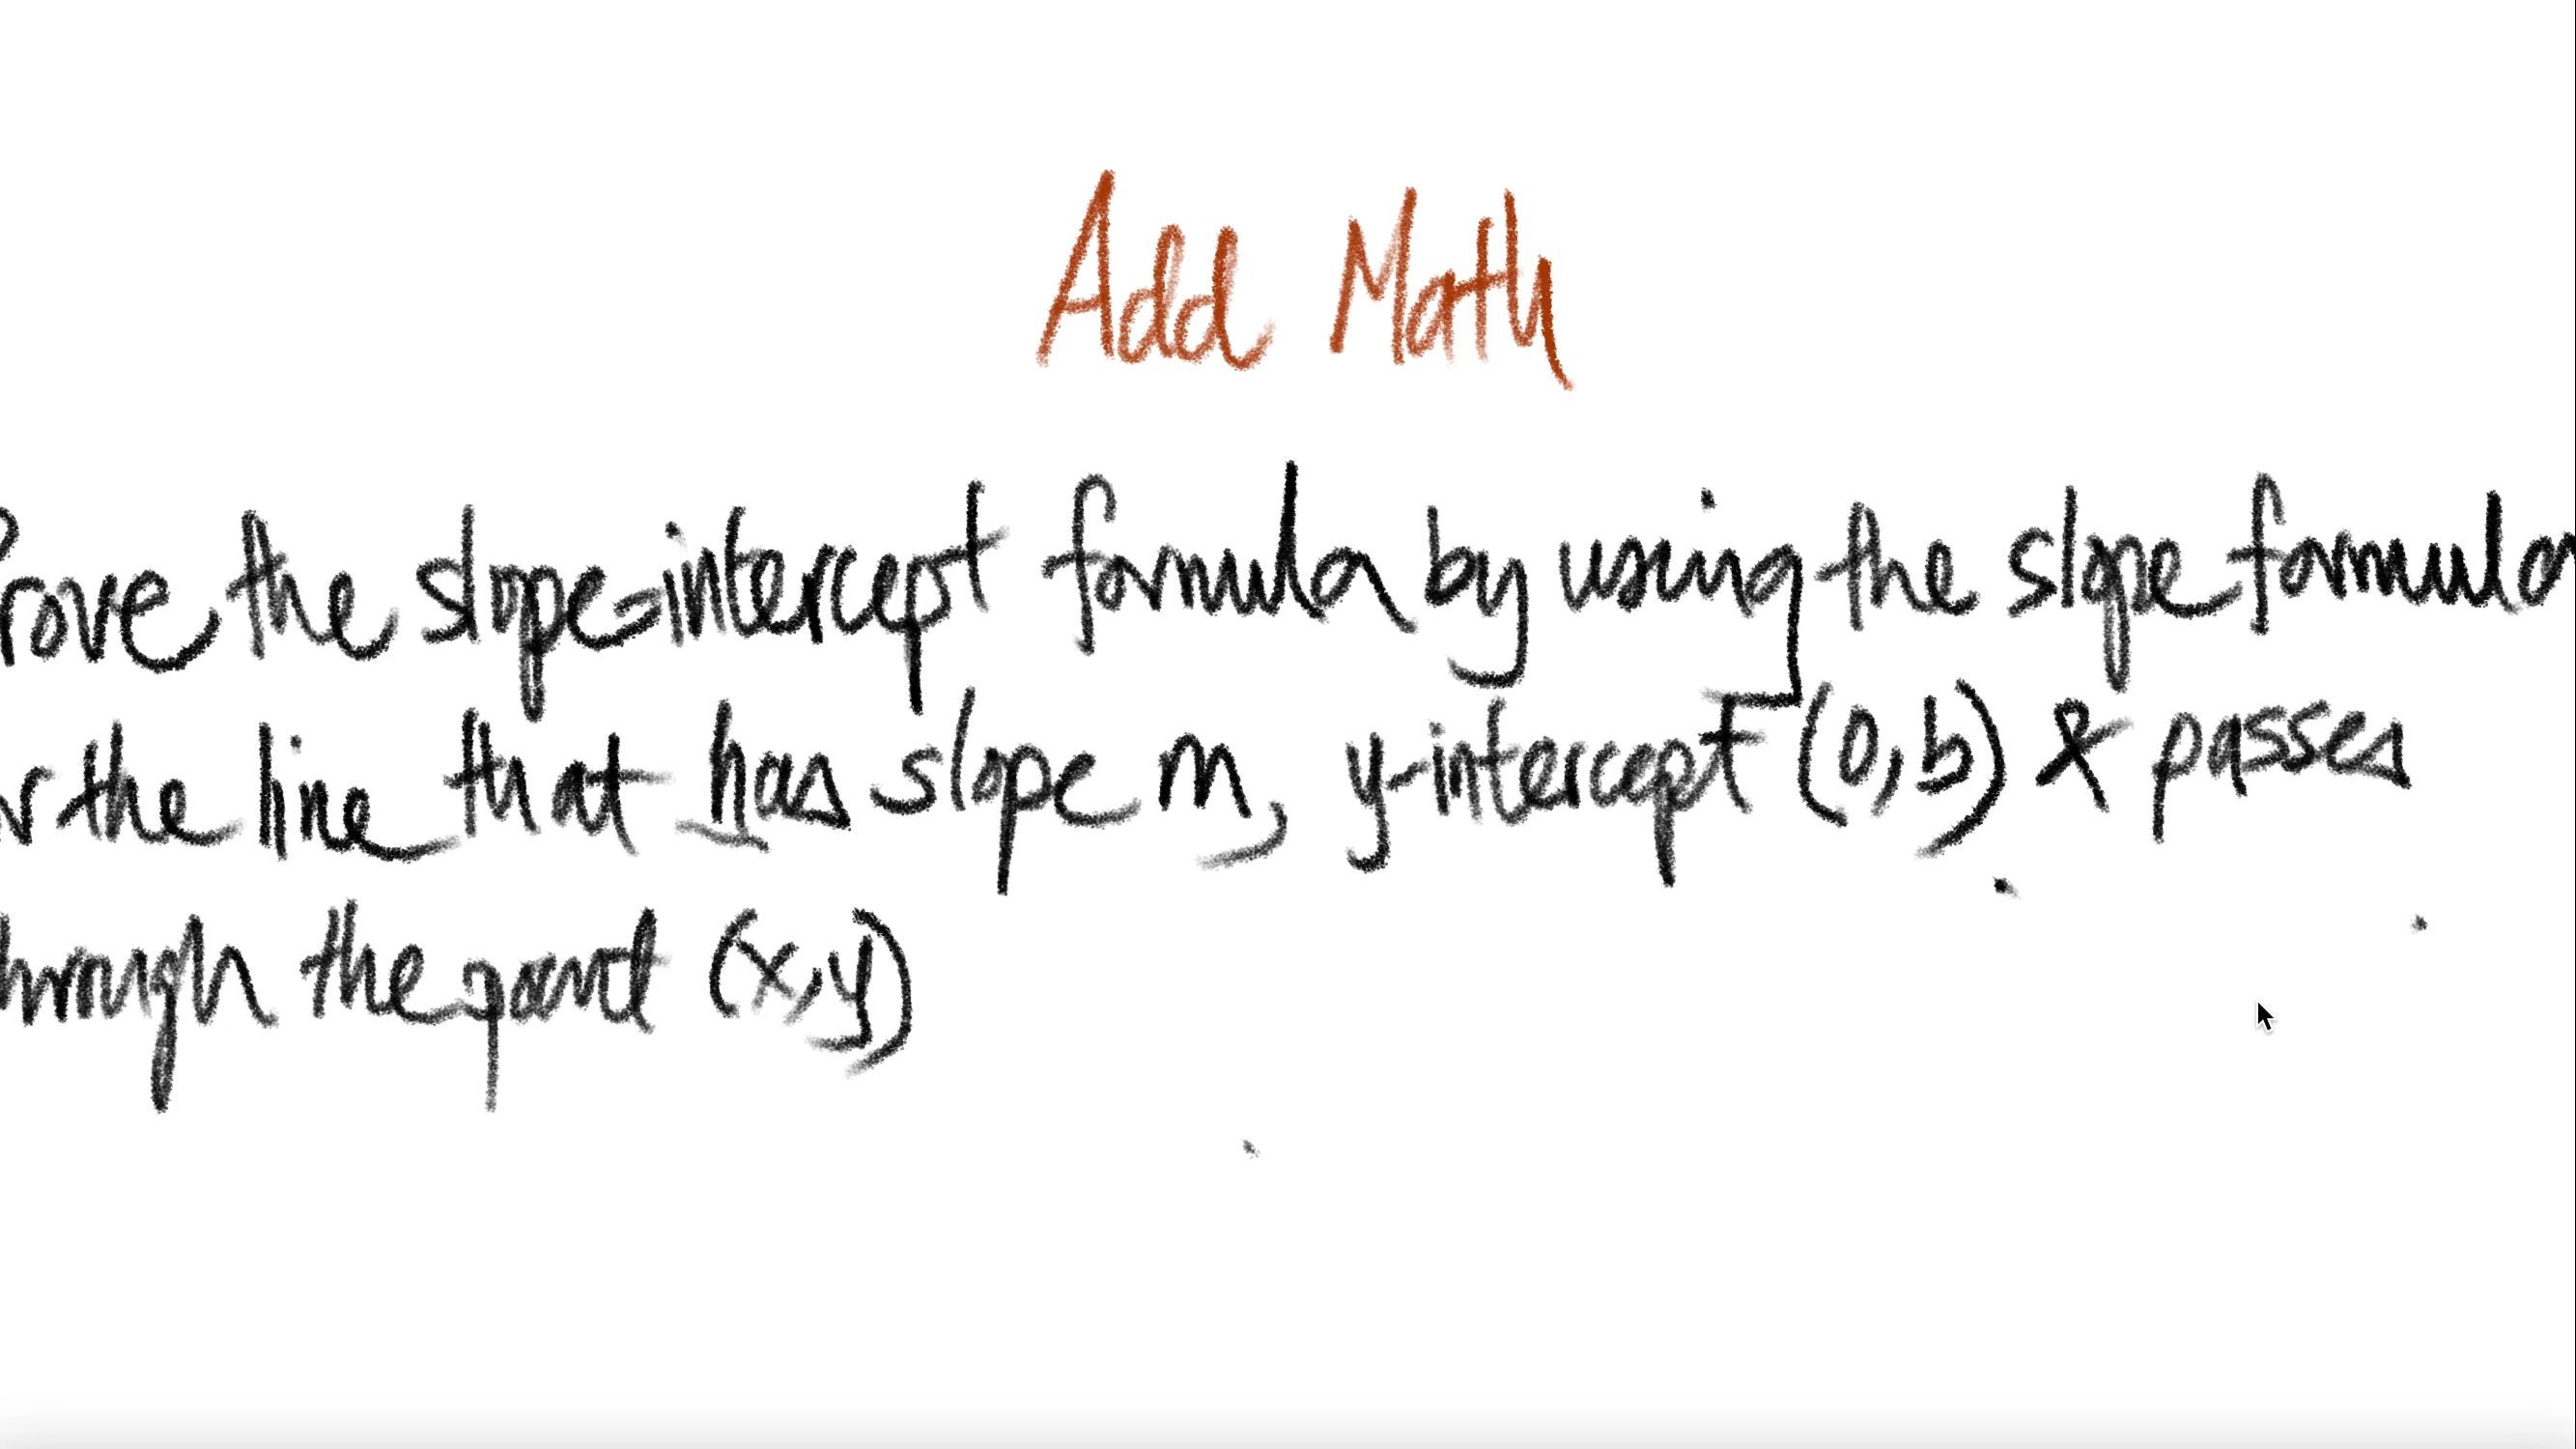 Add Math
Prove the slope-intercept formula by using the slope formula
the line that has slope m, y-intercept (0,b) & passes
through the point (x,y)